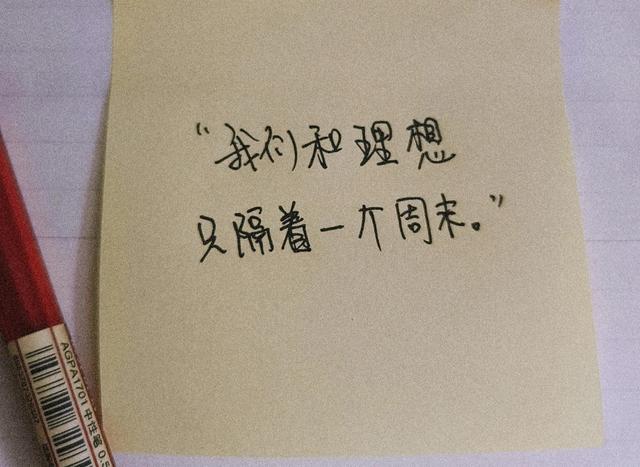 “我们和理想
只隔着一个周末。”
AGPA1701 中性笔 0.5